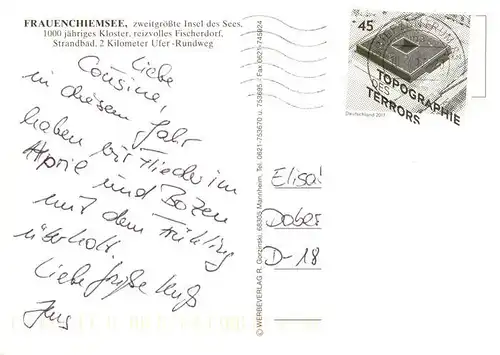 FRAUENCHIEMSEE, zweitgrößte Insel des Sees.
1000 jähriges Kloster, reizvolles Fischerdorf,
Strandbad, 2 Kilometer Ufer-Rundweg
Liebe
Cousine,
in diesem Jahr
haben wir Flieder im
April und Bozen
mit dem Frühling
überholt.
Liebe Grüße Kuß
Jens
© WERBEVERLAG R. Gorzinski, 68305 Mannheim, Tel. 0621-753670 u. 753685 - Fax 0621-745924
45
TOPOGRAPHIE
DES
TERRORS
Deutschland 2011
Elisa
Dober
D-18